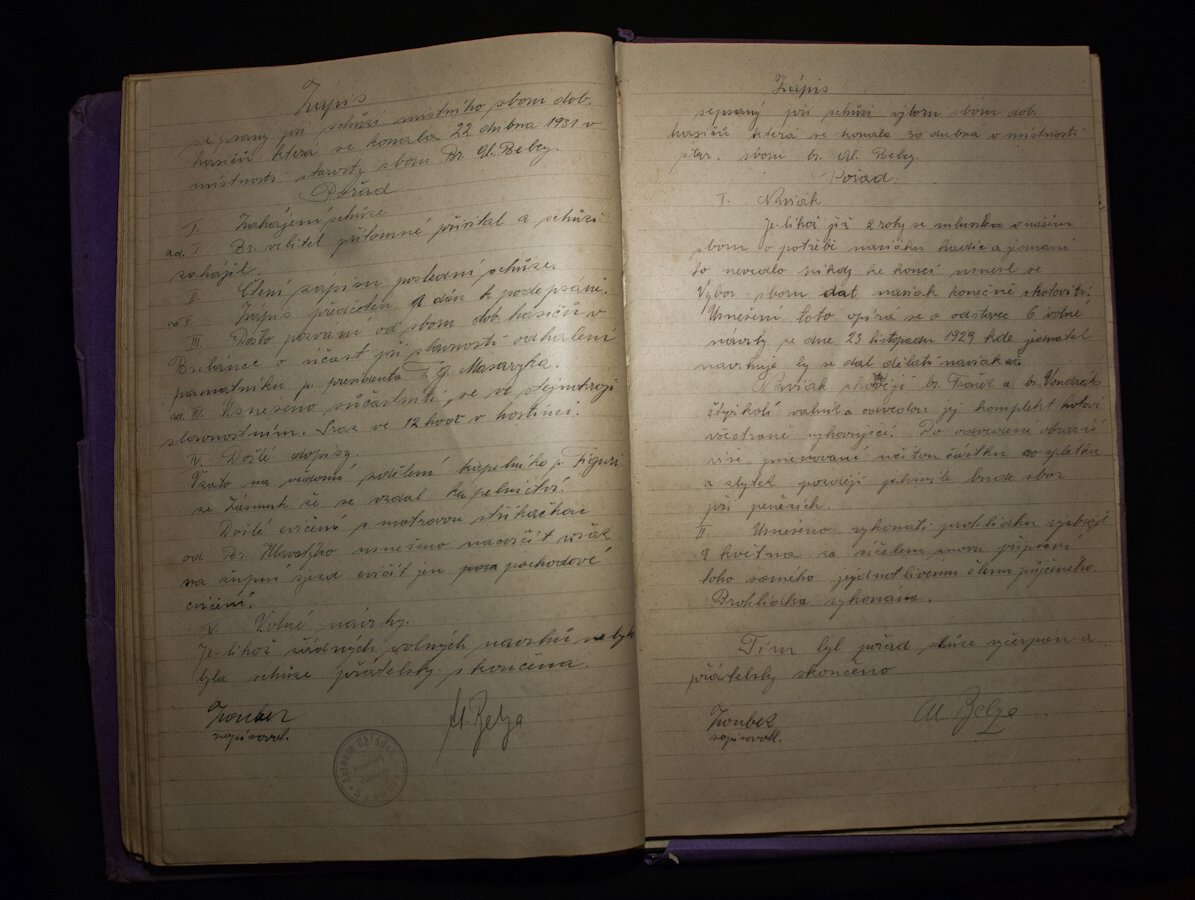 Zápis
sepsaný při schůzi místního sboru dob.
hasičů která se konala 22 dubna 1931 v
místnosti starosty sboru Br. Al. Belzy.
Pořad
I. Zahájení schůze
ad. I. Br. velitel přítomné přivítal a schůzi
zahájil.
II. Čtení zápisu poslední schůze.
ad II. Zápis předčten a dán k podepsání.
III. Došlo pozvání od sboru dob. hasičů v
o účast při slavnosti odhalení
pomníku p. presidenta T. G. Masaryka.
ad. III. Usneseno súčastniti se ve stejnokroji
slavnostním. Sraz ve 12 hod v hostinci.
IV. Došlé dopisy.
Vzato na vědomí sdělení kapelníka p.
ze že se vzdal kapelnictví.
Došlé cvičení s motorovou stříkačkou
od Br. usneseno nacvičit však
na župní sjezd cvičit jen pochodové
cvičení.
V. Volné návrhy.
Je-likož žádných volných navrhů ne bylo
byla schůze přátelsky skončena.
Zoubek Al. Belza
zapisovatel.
Antonín
Zápis
sepsaný při schůzi výboru sboru dob.
hasičů která se konala 30 dubna v místnosti
star. sboru br. Al. Belzy.
Pořad.
I. Naviak
Je-likož již 2 roky se mluvilo v našem
sboru o potřebě naviáku hadic a jednání
to nevedlo nikdy ke konci usnesl se
Výbor sboru dat naviak konečně zhotoviti.
Usnesení toto opírá se o odstavec 6 volné
návrhy ze dne 23 listopadu 1929 kde jednatel
navrhuje by se dal dělati naviak.
Naviak zhotoví br. a br. Vondrák
čtyřkolí a odvedou jej komplet hotový
všestraně vyhovující. Po odvedení obdrží
více jmenovaní určitou částku co splátku
a zbytek později jakmile bude sbor
při penězích.
II. Usneseno vykonati prohlídku výzbroje
2 května za účelem znovu připsání
toho samého jednotlivému členu půjčeného.
Prohlídka vykonána.
Tím byl pořad schůze vyčerpan a
přátelsky skončeno
Zoubek Al. Belza
zapisovatel.